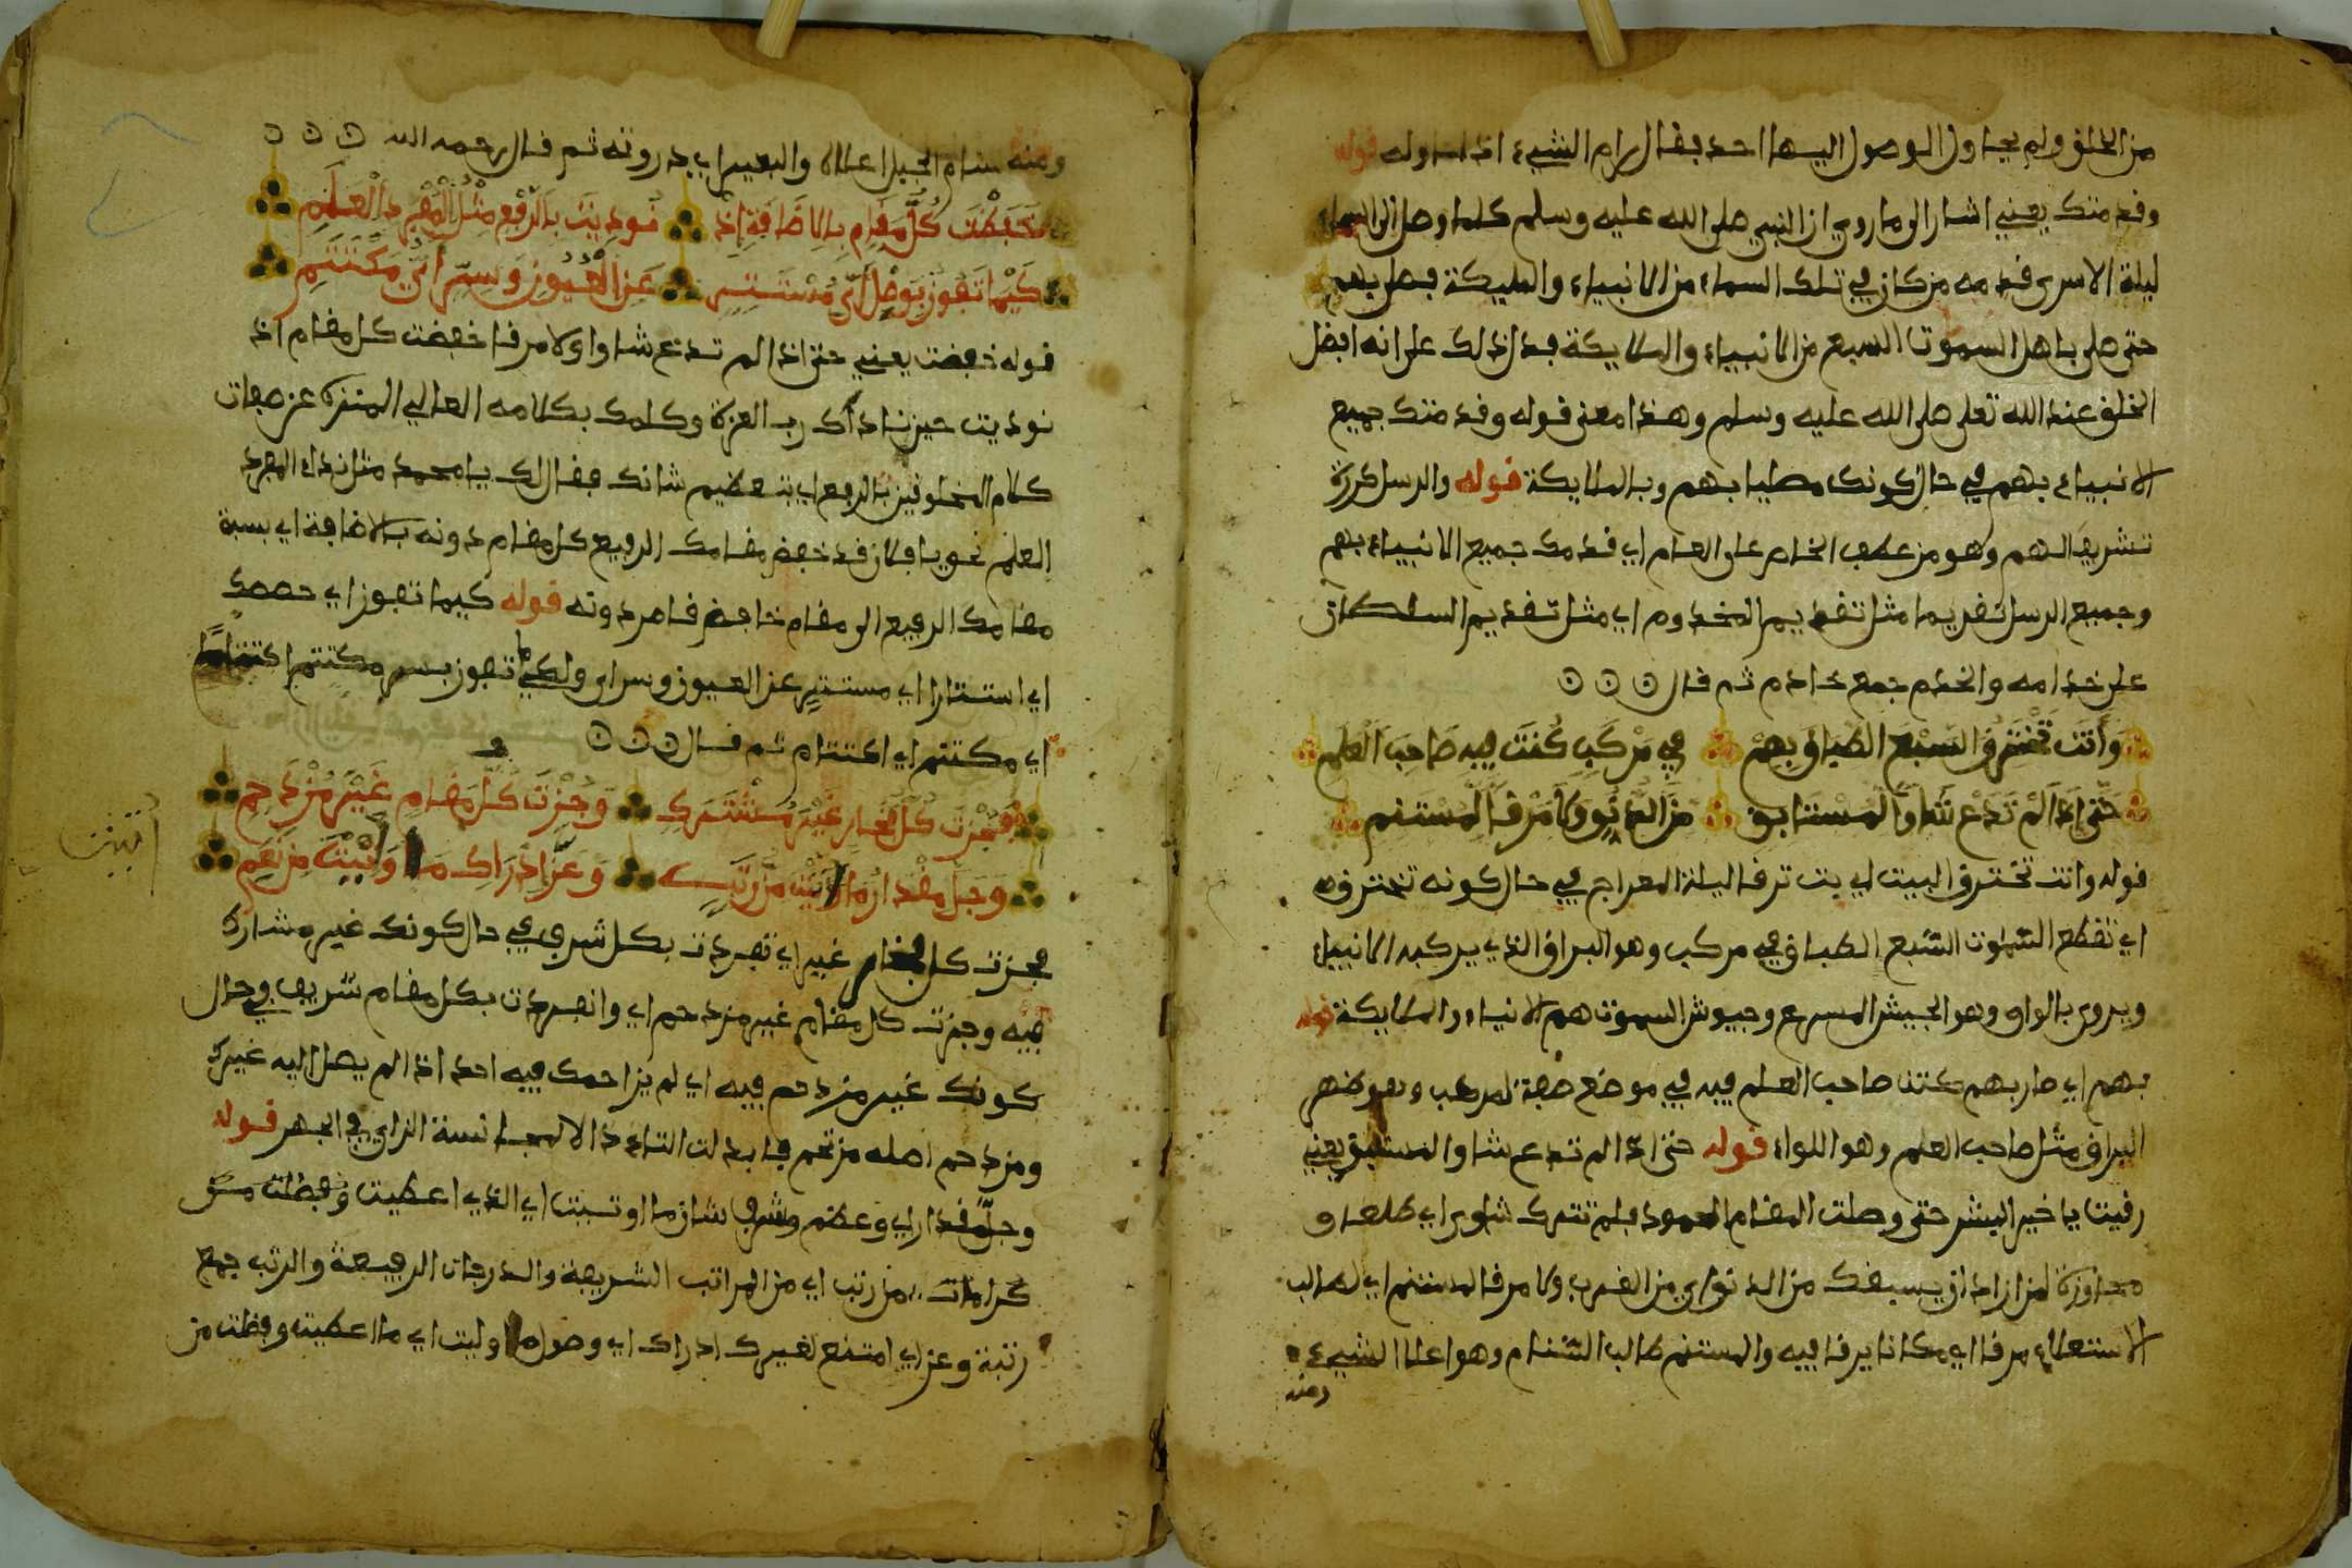 من الخلق ولم يحاول الوصول اليها احد يقال رام الشيء اذا حاوله قوله
وقدمتك يعني اشار الى ما روي ان النبي صلى الله عليه وسلم كلما وصل الى السماء
ليلة الاسرى قدمه من كان في تلك السماء من الانبياء والمليكة فصلى بهم
حتى صلى باهل السموت السبع من الانبياء والملايكة فدل ذلك على انه افضل
الخلق عند الله تعلى صلى الله عليه وسلم وهذا معنى قوله وقدمتك جميع
الانبياء بهم في حال كونك مصليا بهم وبالملايكة قوله والرسل كرره
تشريفا لهم وهو من عطف الخاص على العام اي قدمك جميع الانبياء بهم
وجميع الرسل تقديما مثل تقديم المخدوم اي مثل تقديم السلطان
على خدامه والخدم جمع خادم ثم قال
وَأَنتَ تَخْتَرِقُ السَّبْعَ الطِّبَاقَ بِهِمْ في مَرْكَبٍ كُنتَ فِيهِ صَاحِبَ الْعَلَمِ
حَتَّى إِذَا لَمْ تَدَعْ شَأْوًا لِمُسْتَابِقٍ مِنَ الدُّنُوِّ وَلَا مَرْقًا لِمُسْتَنِمِ
قوله وانت تخترق البيت اي بت ترقا ليلة المعراج في حال كونه تخترق
اي تقطع السموت السبع الطباق في مركب وهو البراق الذي يركبه الانبياء
ويروى بالواو وهو الجيش المسرع وجيوش السموت هم الانبياء والملايكة قوله
بهم اي مار بهم كنت صاحب العلم فيه في موضع صفة لمركب وهو ظهر
البراق مثل صاحب العلم وهو اللواء قوله حتى اذا لم تدع شاوا لمستبق يعني
رقيت يا خير البشر حتى وصلت المقام المحمود فلم تترك شاوا اي طلعا و
مجاوزة لمن اراد ان يسبقك من الدنو اي من القرب ولا مرقا لمستنم اي لطالب
الاستعلاء مرقا اي مكانا يرقا فيه والمستنم طالب السنام وهو اعلا الشيء
ومنه
ومنه سنام الجبل اعلاه والبعير اي ذروته ثم قال رحمه الله
خَفَضْتَ كُلَّ مَقَامٍ بِالاِضَافَةِ إِذْ نُودِيتَ بِالرَّفْعِ مِثْلَ الْمُفْرَدِ الْعَلَمِ
كَيْمَا تَفُوزَ بِوَصْلٍ أَيِّ مُسْتَتِرٍ عَنِ الْعُيُونِ وَسِرٍّ أَيِّ مُكْتَتَمِ
قوله خفضت يعني حتى اذا لم تدع شاوا ولا مرقا خفضت كل مقام اذ
نوديت حين ناداك رب العزة وكلمك بكلامه العالي المنزه عن صفات
كلام المخلوقين بالرفع اي بتعظيم شانك فقال لك يا محمد مثل نداء المفرد
العلم نحو يا فلان قد خفض مقامك الرفيع كل مقام دونه بالاضافة اي بنسبة
مقامك الرفيع الى مقام خافض قاصر دونه قوله كيما تفوز اي
اي استتارا اي مستتر عن العيون وسر اي ولكي تفوز بسر مكتتم اكتتاما
اي مكتتم اي اكتتام ثم قال
فَحُزْتَ كُلَّ فَخَارٍ غَيْرَ مُشْتَرَكٍ وَجُزْتَ كُلَّ مَقَامٍ غَيْرَ مُزْدَحِمِ
وَجَلَّ مِقْدَارُ مَا أُوتِيتَ مِن رُتَبٍ وَعَزَّ إِدْرَاكُ مَا أُولِيتَ مِن نِّعَمِ
فحزت كل فخار غير اي تفردت بكل شرف في حال كونك غير مشارك
فيه وجزت كل مقام غير مزدحم اي وانفردت بكل مقام شريف في حال
كونك غير مزدحم فيه اي لم يزاحمك فيه احد اذ لم يصل اليه غيرك
ومزدحم اصله مزتحم فابدلت التاء دالا لمجانسة الزاي في الجهر قوله
وجل مقدار اي وعظم وشرف شان ما اوتيت اي الذي اعطيت وفضلت من
كرامات من رتب اي من المراتب الشريفة والدرجات الرفيعة والرتب جمع
رتبة وعز اي امتنع لغيرك ادراك اي وصول ما اوليت اي ما اعطيت وفضلت من